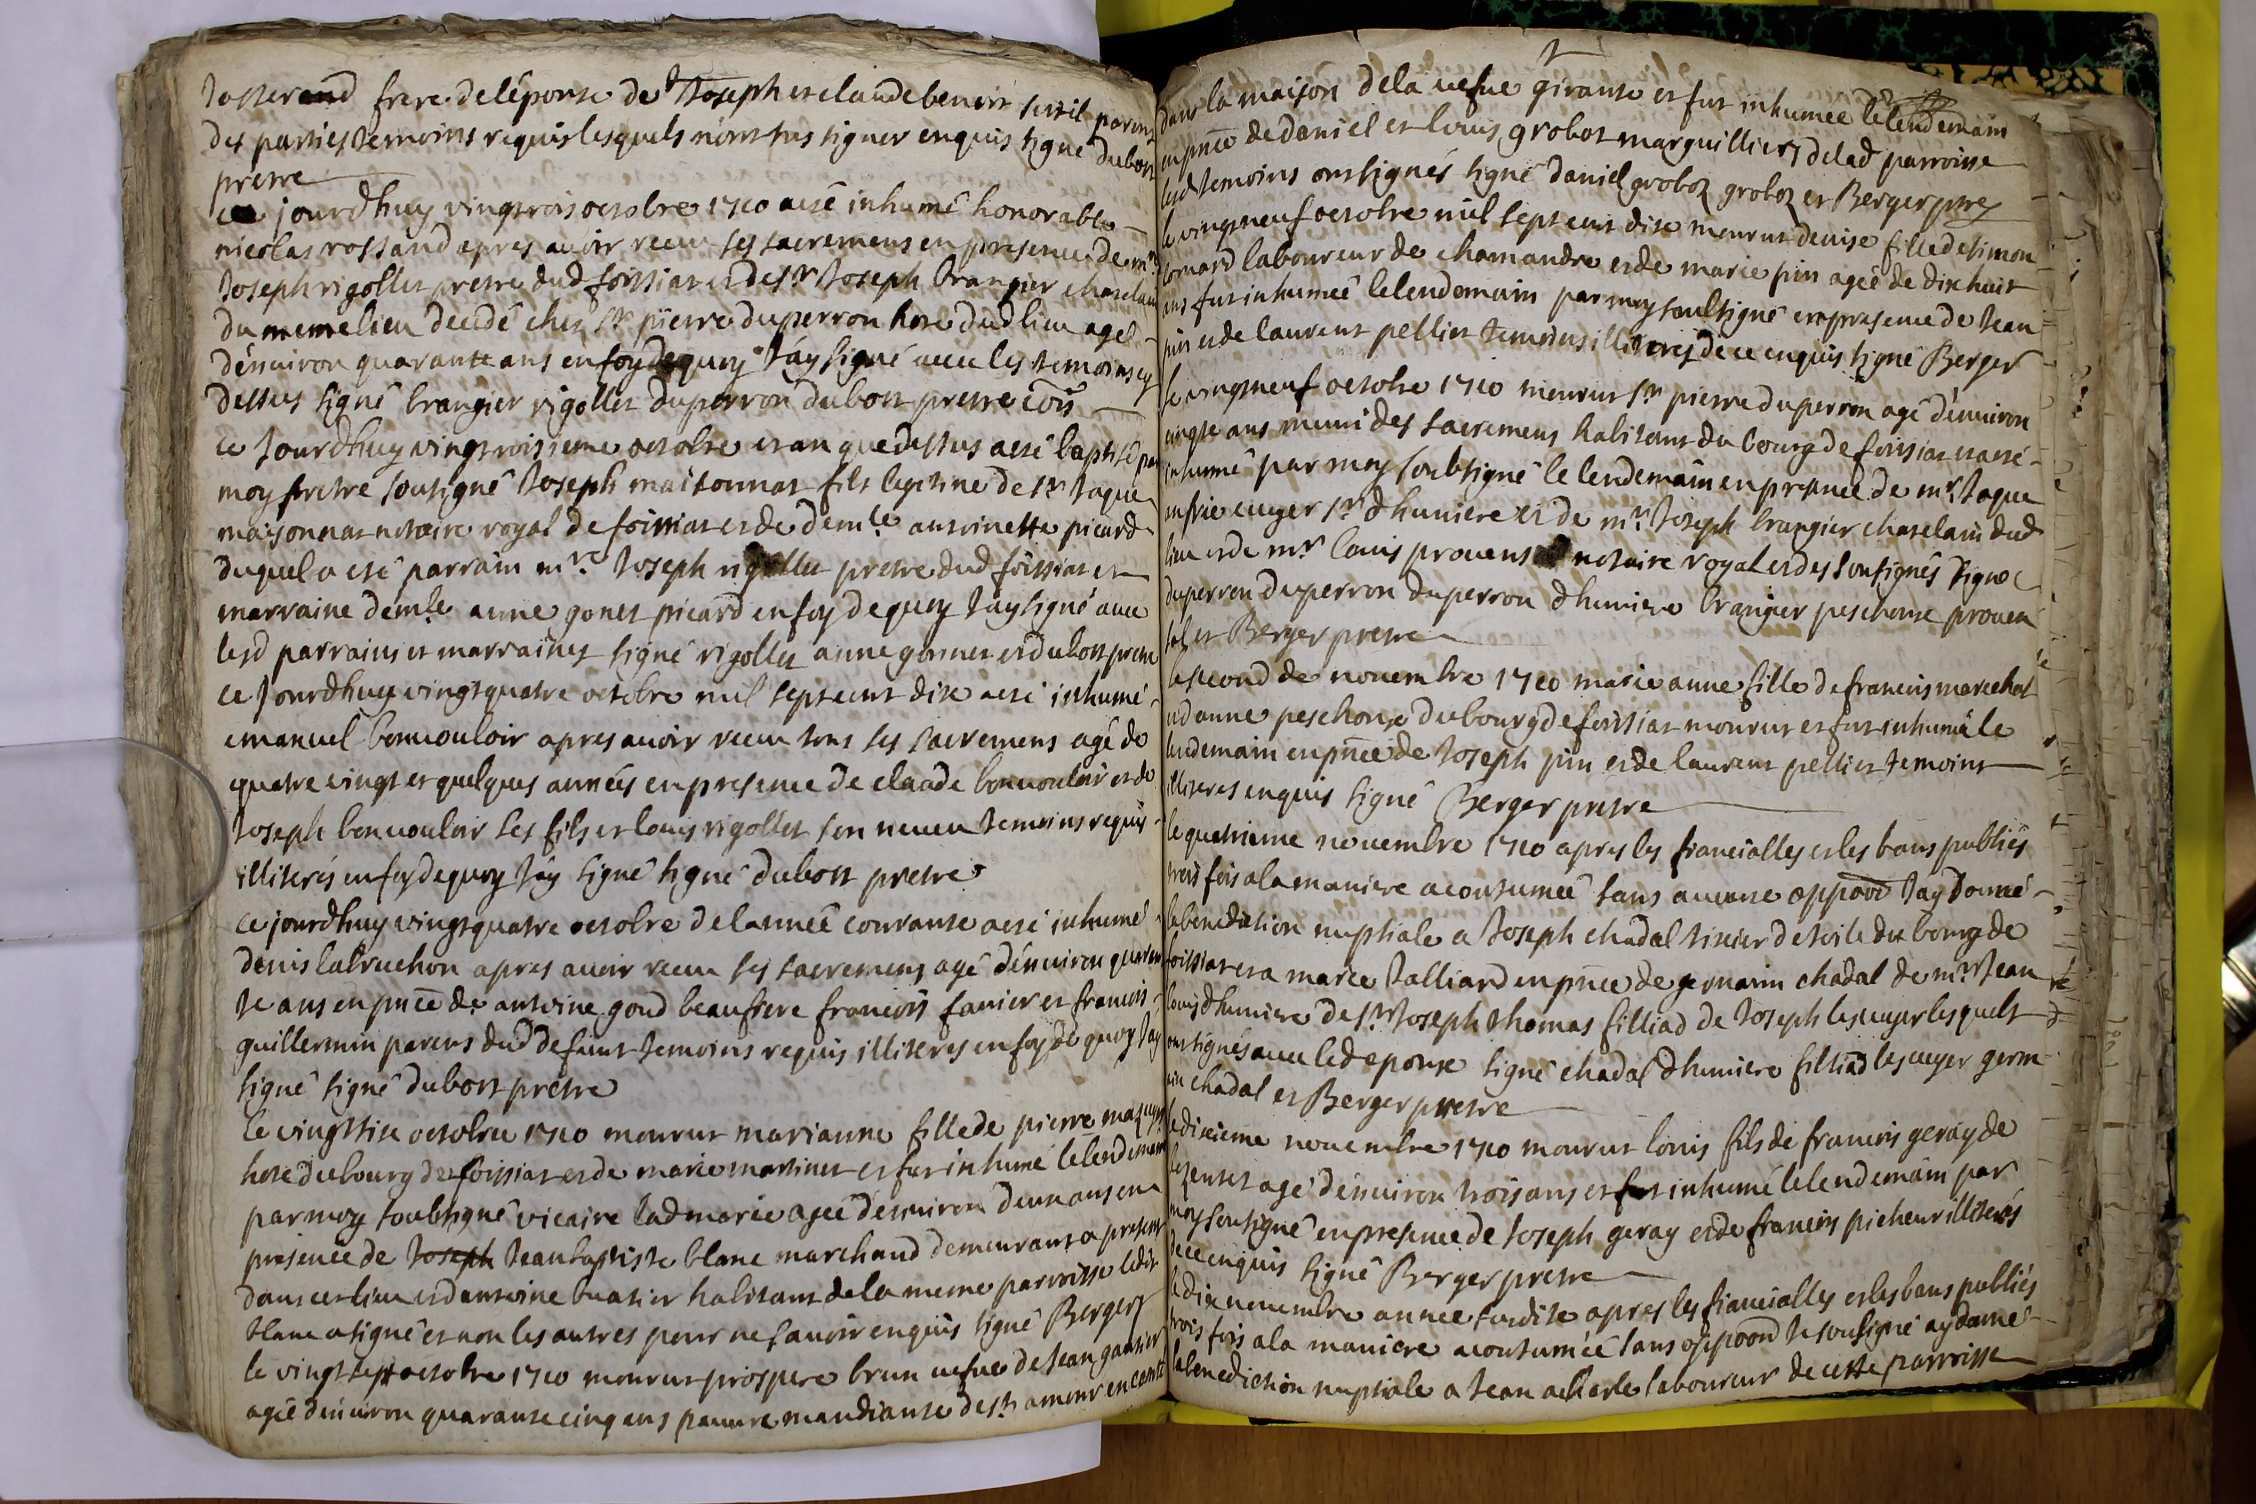 Josserand frere de lépouse de d Joseph et claude benoit sertil parents
des parties temoins requis lesquels nont sus signer enquis signé dubost
pretre
ce jourdhuy vingt trois octobre 1710 a esté inhumé honorable
nicolas rossand apres avoir receu ses sacremens en presence de mre
Joseph rigollet pretre dud foissiat et de sr Joseph brangier chatelain
du meme lieu decedé chez sr pierre duperron hote dud lieu agé
dénviron quarante ans en foy de quoy Jáy signé avec les temoins cy
dessus signé brangier rigollet duperron dubost pretre
ce Jourdhuy vingt troisieme octobre et an que dessus a esté baptisé par
moy pretre soussigné Joseph maisonnat fils legitime de sr Jaque
maisonnat notaire royal de foissiat et de demle antoinette picard
duquel a esté parrain mre Joseph rigollet pretre dud foissiat et
marraine demle anne gonet picard en foy de quoy Jáy signé avec
lesd parrains et marraines signé rigollet anne gonnet et dubost pretre
ce Jourdhuy vingt quatre octobre mil sept cent dix a esté inhumé
emanuel bonvouloir apres avoir receu tous ses sacremens agé de
quatre vingt et quelques années en presence de claude bonvouloir et de
Joseph bonvouloir ses fils et louis rigollet son neveu temoins requis
illiterés en foy de quoy Jáy signé signé dubost pretre
ce jourdhuy vingt quatre octobre de lannée courante a esté inhumé
denis labruchon apres avoir receu ses sacremens agé dénviron quaran
te ans en pnce de antoine goud beaufrere francois favier et francois
guillermin parens dud defunt temoins requis illiteres en foy de quoy Jay
signé signé dubost prétre
le vingt six octobre 1710 mourut marianne fille de pierre
hote du bourg de foissiat et de marie martinet et fut inhumé le lendemain
par moy soubsigné vicaire lad marie agée dénviron deux ans en
presence de Joseph Jean baptiste blanc marchand demeurant a present
dans ce lieu et dantoine buatier habitant de la meme parroisse ledit
blanc a signé et non les autres pour ne savoir enquis signé Berger
le vingt sept octobre 1710 mourut prospere brun vefve de Jean
agée dénviron quarante cinq ans pauvre mandiante de st amour en comté
dans la maison de la vefve girante et fut inhumée le lendemain
en pnce de daniel et louis grobot marguilliers de lad parroisse
lesd temoins ont signés signé daniel groboz groboz et Berger pretre
le vingt neuf octobre mil sept cent dix mourut denise fille de simon
laboureur de chamandre et de marie pin agée de dix huit
ans fut inhumeé le lendemain par moy soussigné en presence de Jean
pin et de laurent pellier temoins illiterés de ce enquis signé Berger
le vingt neuf octobre 1710 mourut sr pierre duperron agé dénviron
ans muni des sacremens habitant du bourg de foissiat et a esté
inhumé par moy soubsigné le lendemain en presence de mr Jaque
ecuyer sr dhumiere et de mr Joseph brangier chatelain dud
lieu et de mr louis provensal notaire royal et des soussignés signé
duperron duperron duperron dhumiere brangier peschouse proven
sal et Berger pretre
le second de novembre 1710 marie anne fille de francois marechal
et danne peschouse du bourg de foissiat mourut et fut inhumée le
lendemain en pnce de Joseph pin et de laurent pellier temoins
illiteres enquis signé Berger pretre
le quatrieme novembre 1710 apres les fiancialles et les bans publiés
trois fois a la maniere acoutumeé sans aucune oppoon Jay donné
la benediction nuptiale a Joseph chadal tixier de toile du bourg de
foissiat et a marie Jalliard en pnce de germain chadal de mr Jean
louis dhumiere de sr Joseph thomas filliad de Joseph lescuyer lesquels
ont signés avec led epoux signé chadal dhumiere filliad lescuyer germ
ain chadal et Berger pretre
le dixieme novembre 1710 mourut louis fils de francois geray de
agé dénviron trois ans et fut inhumé le lendemain par
moy soussigné en presence de Joseph geray et de francois picheur illiterés
de ce enquis signé Berger pretre
le dix novembre année susdite apres les fiancialles et les bans publiés
trois fois a la maniere acoutumée sans oppoon Je soussigné ay donné
la benediction nuptiale a Jean acharle laboureur de cette parroisse